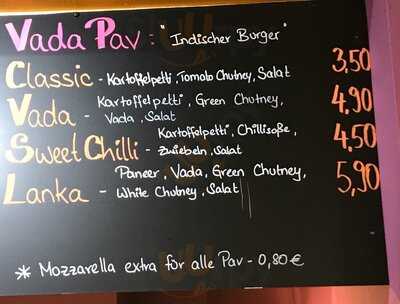 Vada Pav : "Indischer Burger"
Classic - Kartoffelpetti, Tomato Chutney, Salat 3,50
Vada - Kartoffelpetti, Green Chutney, 4,90
Vada, Salat
Sweet Chilli - Kartoffelpetti, Chillisoße, 4,50
Zwiebeln, Salat
Lanka - Paneer, Vada, Green Chutney, 5,90
White Chutney, Salat
* Mozzarella extra for alle Pav - 0,80€